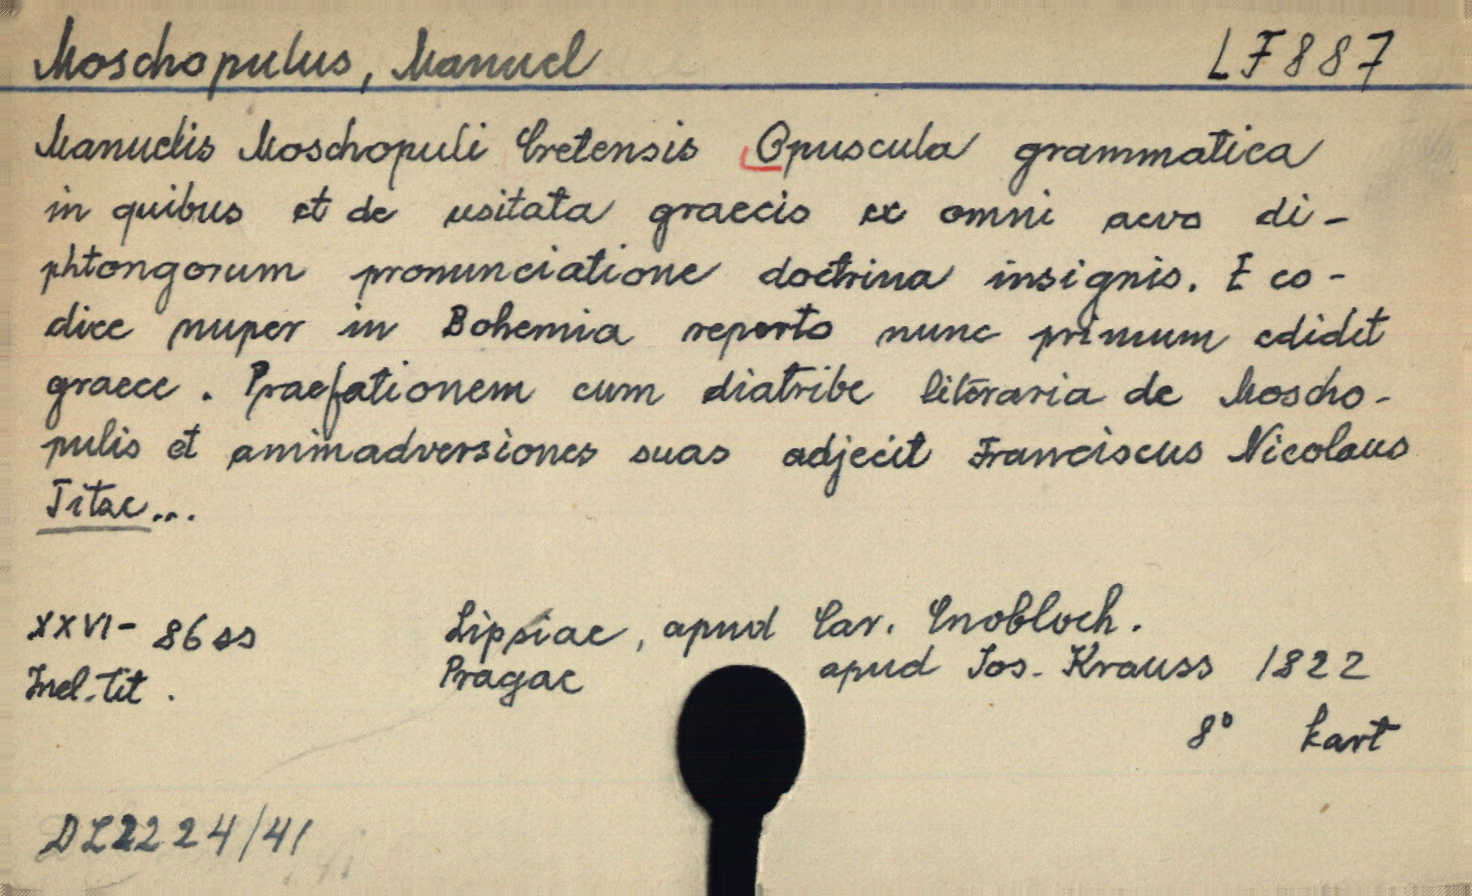 Moschopulus, Manuel LF 887
Manuelis Moschopuli Cretensis Opuscula grammatica
in quibus et de usitata graecis ex omni aevo di-
phtongorum pronunciatione doctrina insignis. E co-
dice nuper in Bohemia reperto nunc primum edidit
graece. Praefationem cum diatribe literaria de Moscho-
pulis et animadversiones suas adjecit Franciscus Nicolaus
Titae...
XXVI- 86 ss Lipsiae, apud Car. Cnobloch.
Incl. tit. Pragae apud Jos. Krauss 1822
8° kart
DL2224/41